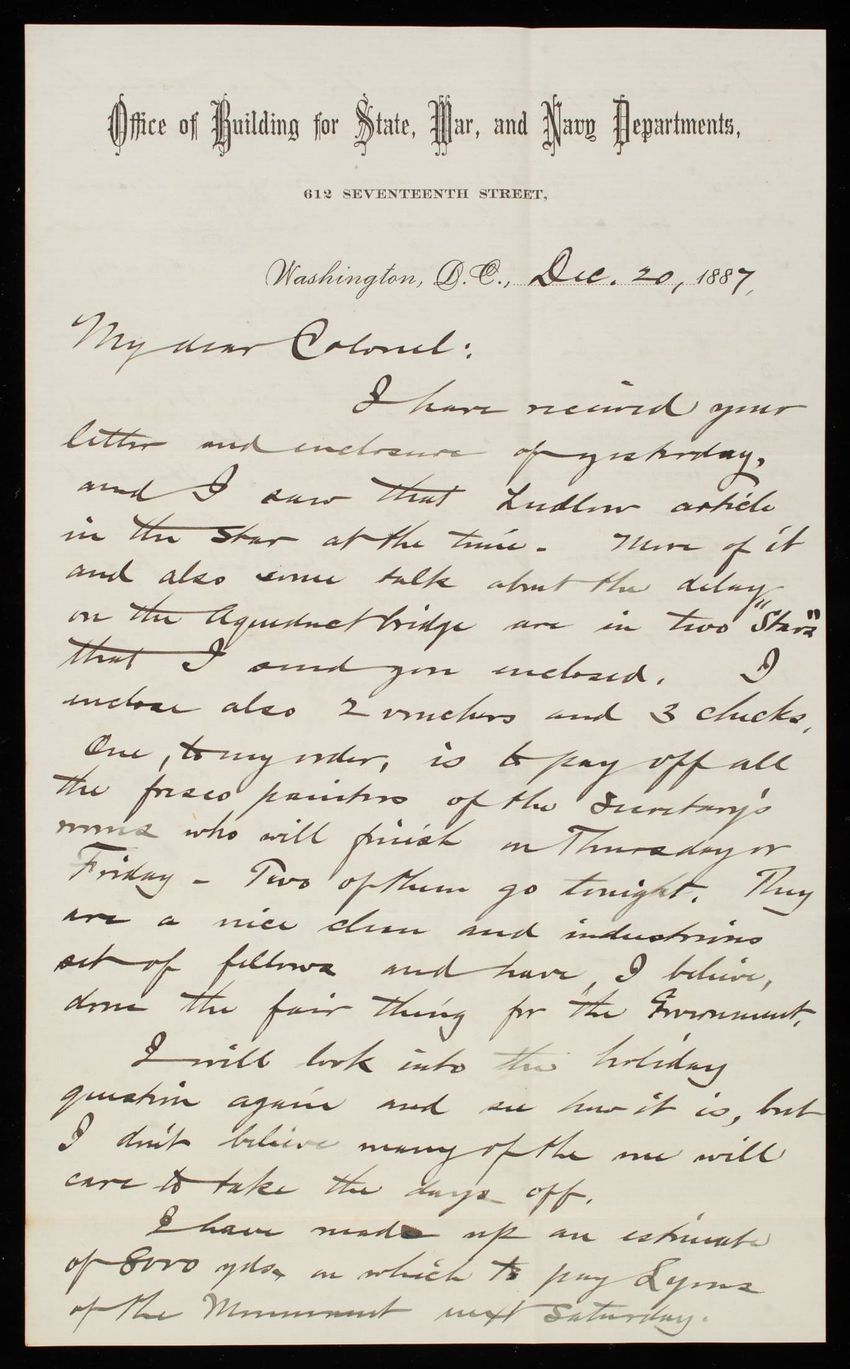 Office of Building for State, War, and Navy Departments,
612 SEVENTEENTH STREET,
Washington, D. C., Dec. 20, 1887,
My dear Colonel:
I have received your
letter and enclosure of yesterday,
and I saw that Ludlow article
in the Star at the time. More of it
and also some talk about the delay
on the Aqueduct bridge are in two "Stars"
that I send you enclosed. I
enclose also 2 vouchers and 3 checks,
One, to my order, is to pay off all
the fresco painters of the Secretary's
rooms who will finish on Thursday or
Friday - Two of them go tonight. They
are a nice clean and industrious
set of fellows and have, I believe,
done the fair thing for the Government.
I will look into the holiday
question again and see how it is, but
I don't believe many of the me will
care to take the days off.
I have made up an estimate
of 8000 yds. on which to pay Lyons
of the Monument next Saturday.